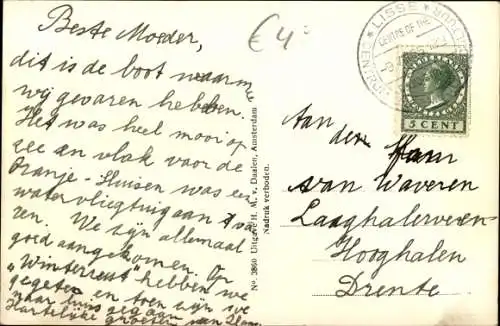 Beste Moeder,
dit is de boot waarmee
wij gevaren hebben.
Het was heel mooi op
zee en vlak voor de
Oranje-Sluisen was een
watervliegtuig aan 't va
ren. We zijn allemaal
goed aangekomen. Op
"Winterrust" hebben we
gegeten en toen zijn we
naar huis gegaan
Hartelijke groeten van
€4-
No. 3860 Uitgave H. M. v. Daalen, Amsterdam
Nadruk verboden.
LISSE
CENTRE OF THE
5 CENT
Aan den Heer
van Waveren
Laaghalerveen
Hooghalen
Drente